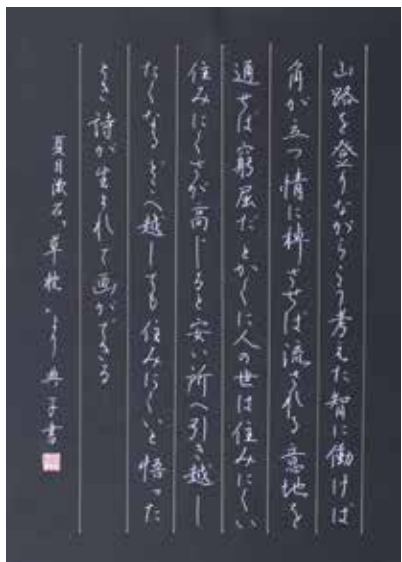 山路を登りながらこう考えた智に働けば
角が立つ情に棹させば流される意地を
通せば窮屈だとかくに人の世は住みにくい
住みにくさが高じると安い所へ引き越し
たくなるどこへ越しても住みにくいと悟った
とき詩が生まれて画ができる
夏目漱石、草枕〃より 書